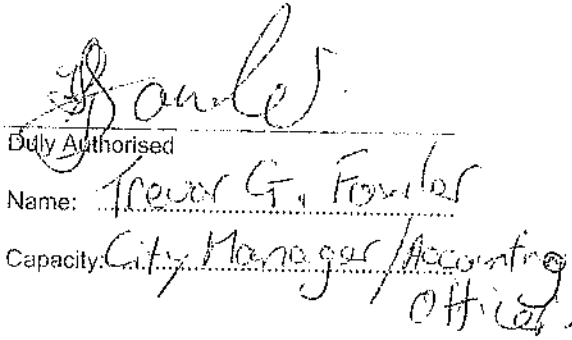 Duly Authorised
Name: Trevor G. Fowler
Capacity: City Manager/Accounting
Officer.